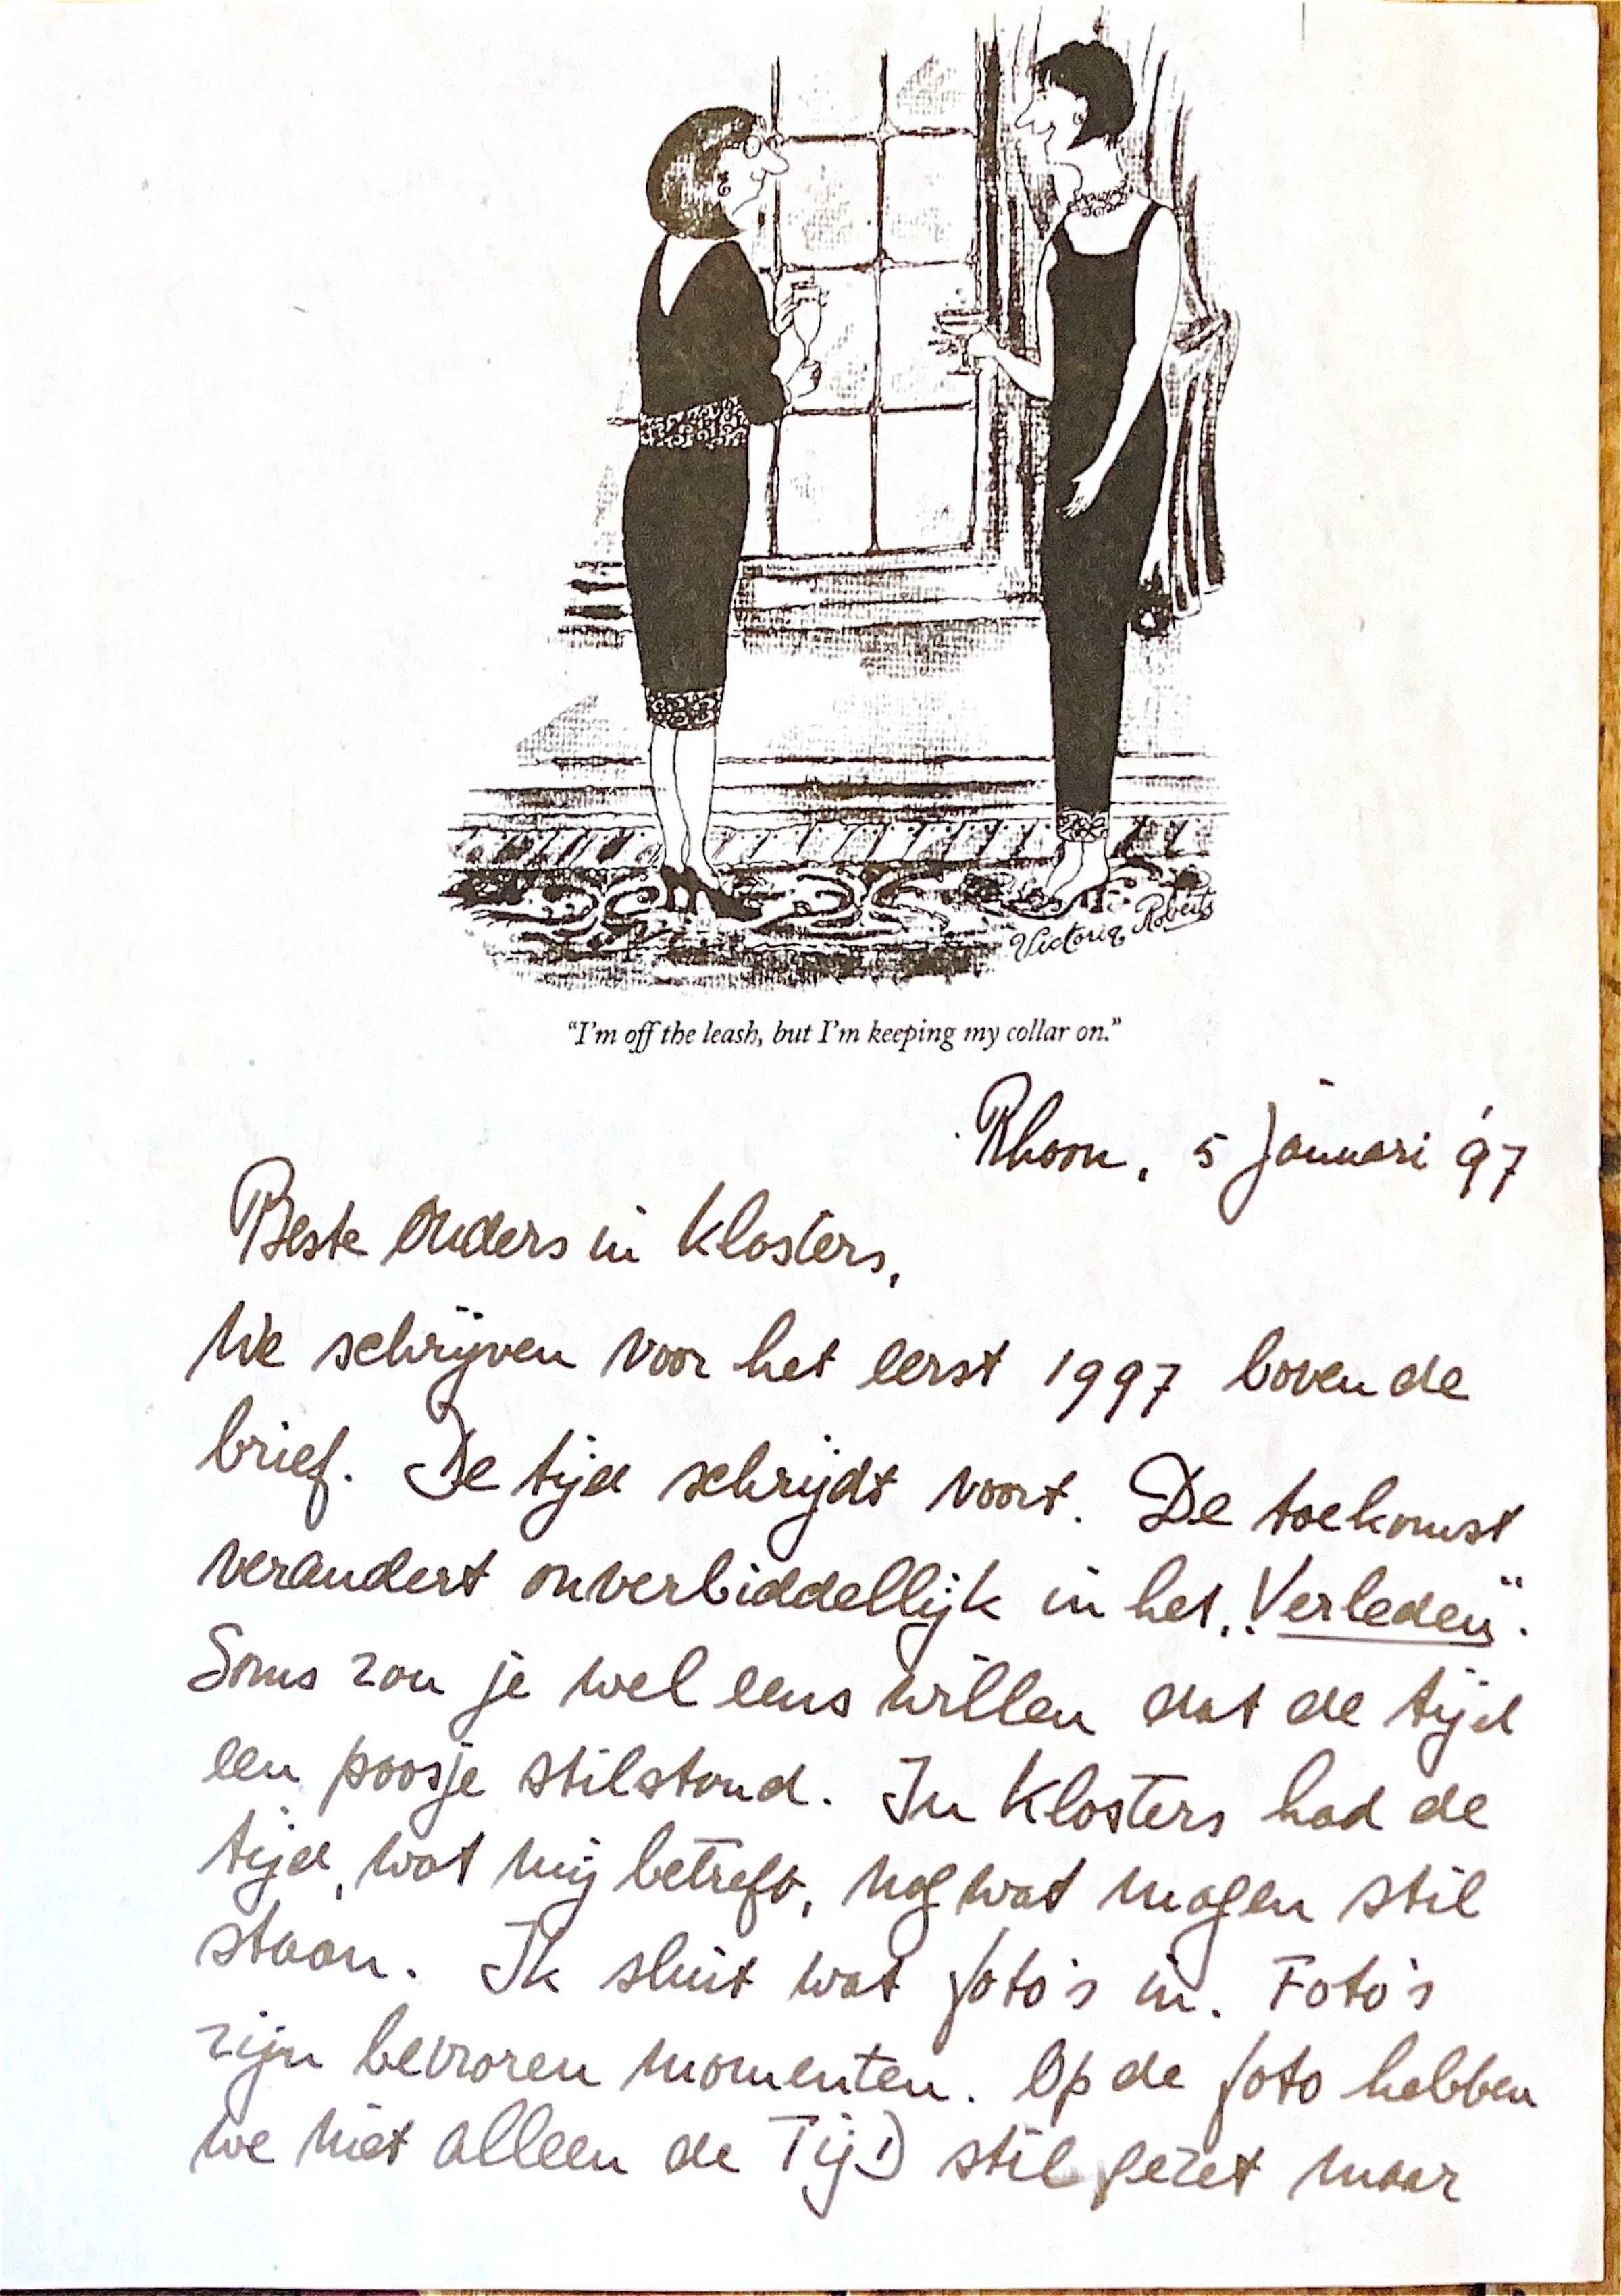 Victoria Roberts
"I'm off the leash, but I'm keeping my collar on."
Rhoon, 5 januari '97
Beste Ouders in Klosters,
We schrijven voor het eerst 1997 boven de
brief. De tijd schrijdt voort. De toekomst
verandert onverbiddellijk in het „Verleden".
Soms zou je wel eens willen dat de tijd
een poosje stilstond. In Klosters had de
tijd, wat mij betreft, nog wat mogen stil
staan. Ik sluit wat foto's in. Foto's
zijn bevroren momenten. Op de foto hebben
we niet alleen de TijD stil gezet maar